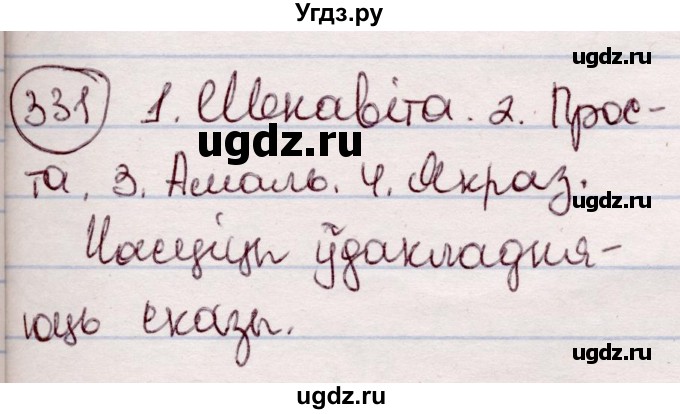 Угдз.ру
ugdz.ru
331 1. Менавіта. 2. Прос-
ugdz.ru
та. 3. Амаль. 4. Якраз.
ugdz.ru
Часціцы ўдакладня-
юць сказы.
ugdz.ru
ugdz.ru